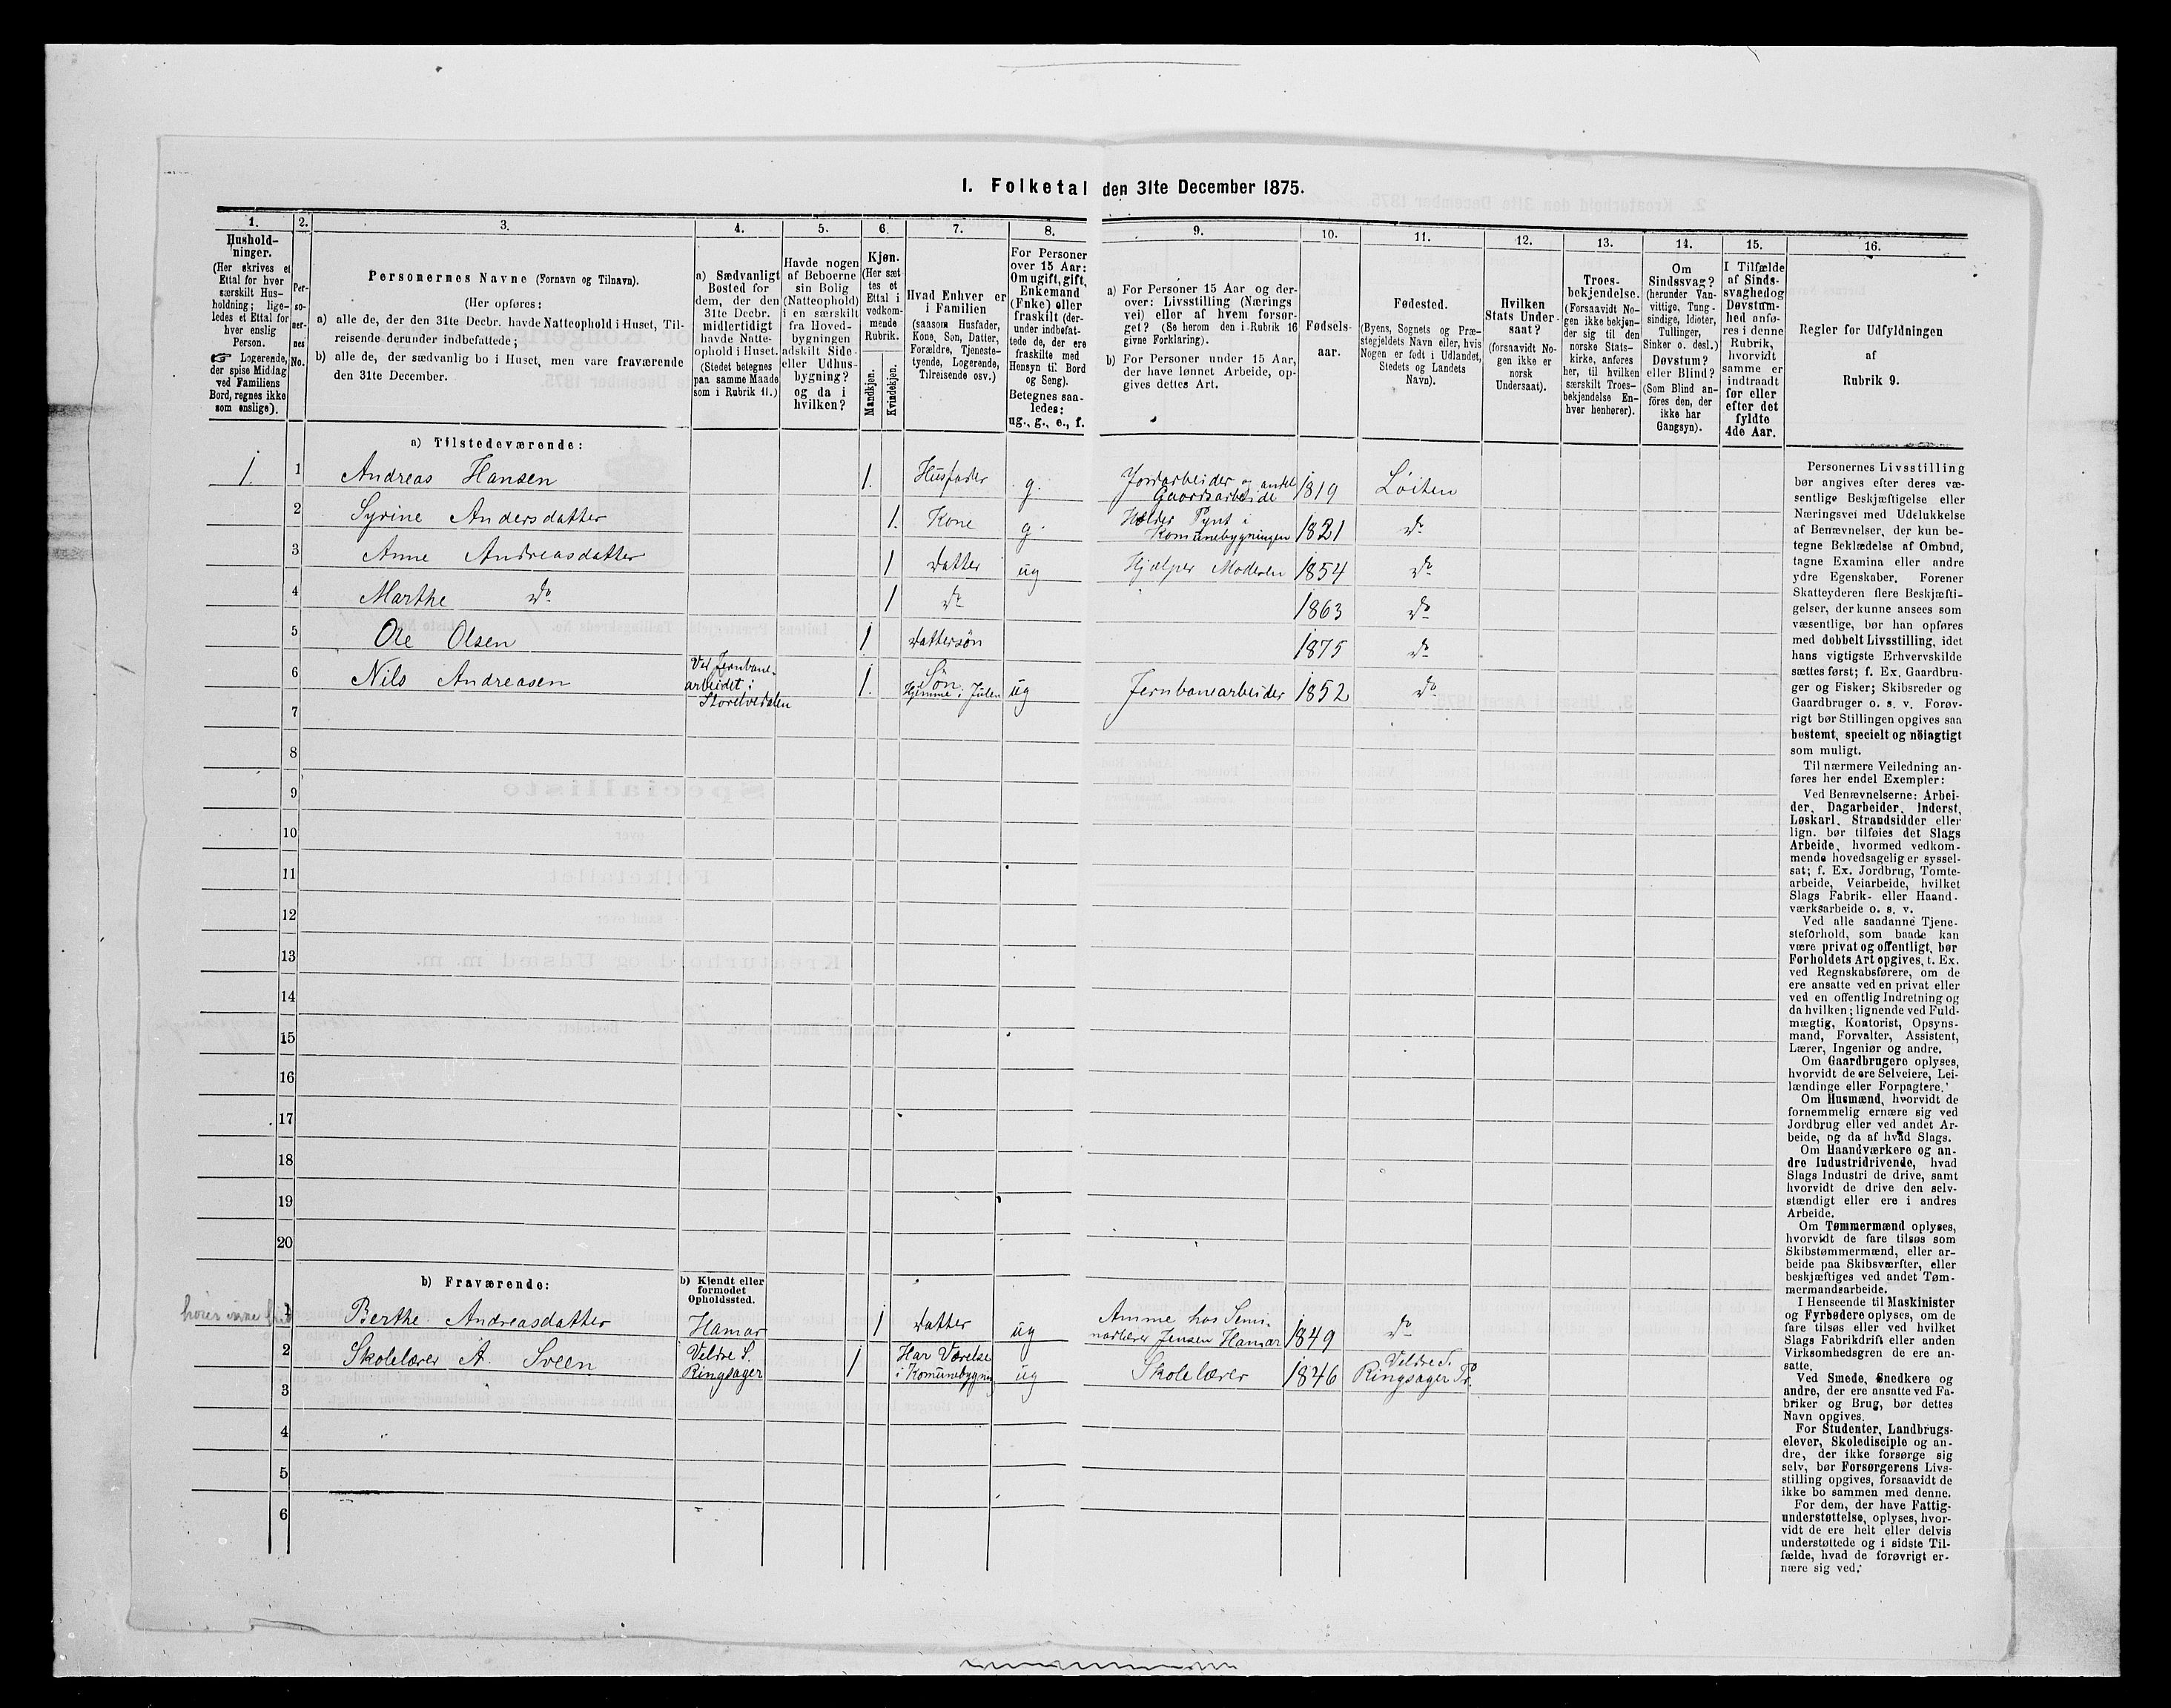 1. Folketal den 31te December 1875.
1. 2. 3. 4. 5. 6. 7. 8. 9. 10. 11. 12. 13. 14. 15. 16.
Hushold-
ninger.
(Her skrives et
Ettal for hver
særskilt Hus-
holdning; lige-
ledes et Ettal for
hver enslig
Person.
☞ Logerende,
der spise Middag
ved Familiens
Bord, regnes ikke
som enslige).
Per-
so-
ner-
nes
No.
Personernes Navne (Fornavn og Tilnavn).
(Her opføres:
a) alle de, der den 31te Decbr. havde Natteophold i Huset, Til-
reisende derunder indbefattede;
b) alle de, der sædvanlig bo i Huset, men vare fraværende
den 31te December.
a) Sædvanligt
Bosted for
dem, der den
31te Decbr.
midlertidigt
havde Natte-
ophold i Huset.
(Stedet betegnes
paa samme Maade
som i Rubrik 11.)
Havde nogen
af Beboerne
sin Bolig
(Natteophold)
i en særskilt
fra Hoved-
bygningen
adskilt Side-
eller Udhus-
bygning?
og da i
hvilken?
Kjøn.
(Her sæt
tes et
Ettal i
vedkom-
mende
Rubrik.
Mandkjøn.
Kvindekjøn.
Hvad Enhver er
i Familien
(saasom Husfader,
Kone, Søn, Datter,
Forældre, Tjeneste-
tyende, Logerende,
Tilreisende osv.)
For Personer
over 15 Aar:
Om ugift, gift,
Enkemand
(Enke) eller
fraskilt (der-
under indbefat-
tede de, der ere
fraskilte med
Hensyn til Bord
og Seng).
Betegnes saa-
ledes:
ug., g., e., f.
a) For Personer 15 Aar og der-
over: Livsstilling (Nærings
vei) eller af hvem forsør-
get? (Se herom den i Rubrik 16
givne Forklaring).
b) For Personer under 15 Aar,
der have lønnet Arbeide, op-
gives dettes Art.
Fødsels-
aar.
Fødested.
(Byens, Sognets og Præ-
stegjeldets Navn eller, hvis
Nogen er født i Udlandet,
Stedets og Landets
Navn).
Hvilken
Stats Under-
saat?
(forsaavidt No-
gen ikke er
norsk
Undersaat).
Troes-
bekjendelse.
(Forsaavidt No-
gen ikke bekjen-
der sig til den
norske Stats-
kirke, anføres
her, til hvilken
særskilt Troes-
bekjendelse En-
hver henhører).
Om
Sindssvag?
(herunder Van-
vittige, Tung-
sindige, Idioter,
Tullinger,
Sinker o. desl.)
Døvstum?
eller Blind?
(Som Blind an-
føres den, der
ikke har
Gangsyn).
I Tilfælde
af Sinds-
svaghed og
Døvstum-
hed anfø-
res i denne
Rubrik,
hvorvidt
samme er
indtraadt
før eller
efter det
fyldte
4de Aar.
Regler for Udfyldningen
af
Rubrik 9.
a) Tilstedeværende:
1. 1 Andreas Hansen 1. Husfader g. Jordarbeider og andet Gaardsarbeide 1819 Løiten
2 Syrine Andersdatter 1. Kone g. Holder Pynt i Komunebygningen 1821 do
3 Anne Andreasdatter 1 datter ug Hjælper Moderen 1854 do
4 Marthe do 1 do 1863 do
5 Ole Olsen 1 dattersøn 1875 do
6 Nils Andreasen Ved Jernbane-arbeidet i Storelvedalen 1. Søn Hjemme i Julen ug Jernbanearbeider 1852 do
7
8
9
10
11
12
13
14
15
16
17
18
19
20
b) Fraværende:
b) Kjendt eller
formodet
Opholdssted.
1 Berthe Andreasdatter Hamar 1 datter ug Amme hos Semi-narlærer Jensen Hamar 1849 do
2 Skolelærer A. Sveen Veldre S. Ringsager 1 Har Værelse i Komunebygning ug Skolelærer 1846 Veldre S. Ringsager Pr.
3
4
5
6
Personernes Livsstilling
bør angives efter deres væ-
sentlige Beskjæftigelse eller
Næringsvei med Udelukkelse
af Benævnelser, der kun be-
tegne Beklædelse af Ombud,
tagne Examina eller andre
ydre Egenskaber. Forener
Skatteyderen flere Beskjæfti-
gelser, der kunne ansees som
væsentlige, bør han opføres
med dobbelt Livsstilling, idet
hans vigtigste Erhvervskilde
sættes først; f. Ex. Gaardbru-
ger og Fisker; Skibsreder og
Gaardbruger o. s. v. Forøv-
rigt bør Stillingen opgives saa
bestemt, specielt og nöiagtigt
som muligt.
Til nærmere Veiledning an-
føres her endel Exempler:
Ved Benævnelserne: Arbei-
der, Dagarbeider, Inderst,
Løskarl, Strandsidder eller
lign. bør tilføies det Slags
Arbeide, hvormed vedkom-
mende hovedsagelig er syssel-
sat; f. Ex. Jordbrug, Tomte-
arbeide, Veiarbeide, hvilket
Slags Fabrik- eller Haand-
værksarbeide o. s. v.
Ved alle saadanne Tjene-
steforhold, som baade kan
være privat og offentligt, bør
Forholdets Art opgives, f. Ex.
ved Regnskabsførere, om de
ere ansatte ved en privat eller
ved en offentlig Indretning og
da hvilken; lignende ved Fuld-
mægtig, Kontorist, Opsyns-
mand, Forvalter, Assistent,
Lærer, Ingeniør og andre.
Om Gaardbrugere oplyses,
hvorvidt de ere Selveiere, Lei-
lændinge eller Forpagtere.
Om Husmænd, hvorvidt de
fornemmelig ernære sig ved
Jordbrug eller ved andet Ar-
beide, og da af hvad Slags.
Om Haandværkere og an-
dre Industridrivende, hvad
Slags Industri de drive, samt
hvorvidt de drive den selv-
stændigt eller ere i andres
Arbeide.
Om Tømmermænd oplyses,
hvorvidt de fare tilsøs som
Skibstømmermænd, eller ar-
beide paa Skibsværfter, eller
beskjæftiges ved andet Tøm-
mermandsarbeide.
I Henseende til Maskinister
og Fyrbødere oplyses, om de
fare tilsøs eller ved hvilket
Slags Fabrikdrift eller anden
Virksomhedsgren de ere an-
satte.
Ved Smede, Snedkere og
andre, der ere ansatte ved Fa-
briker og Brug, bør dettes
Navn opgives.
For Studenter, Landbrugs-
elever, Skoledisciple og an-
dre, der ikke forsørge sig
selv, bør Forsørgerens Livs-
stilling opgives, forsaavidt de
ikke bo sammen med denne.
For dem, der have Fattig-
understøttelse, oplyses, hvor-
vidt de ere helt eller delvis
understøttede og i sidste Til-
fælde, hvad de forøvrigt er-
nære sig ved.